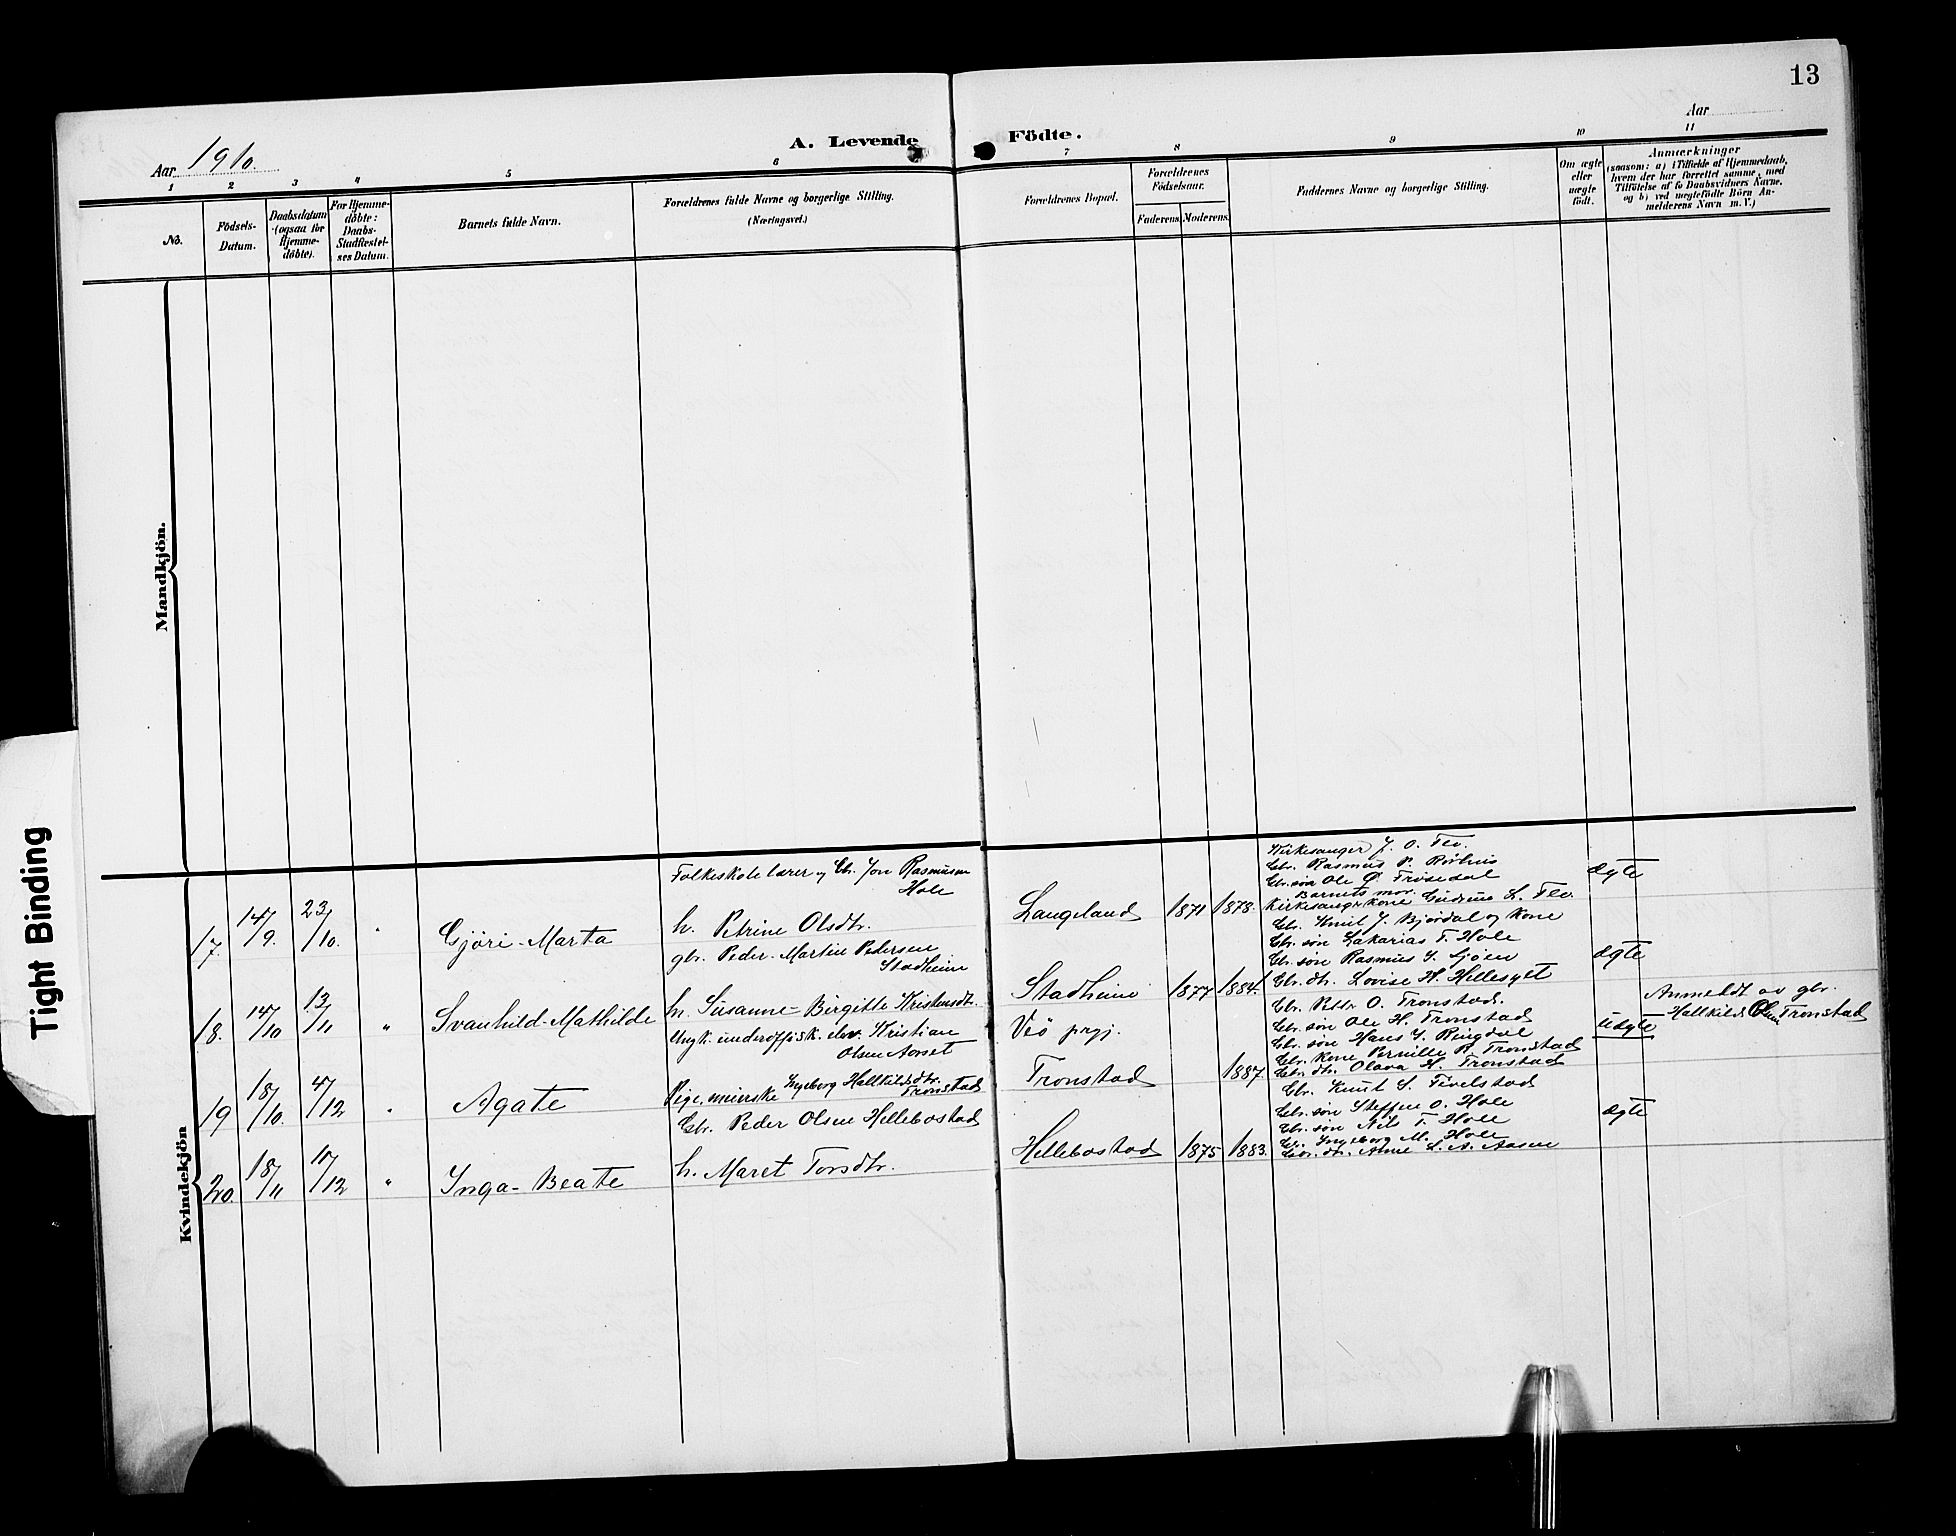 13
Aar 1910.
A. Levende Födte.
Aar
1 2 3 4 5 6 7 8 9 10 11
No.
Födsels-Datum.
Daabsdatum (ogsaa for Hjemme-döbte).
For Hjemme-döbte: Daabs-Stadfæstel-ses Datum.
Barnets fulde Navn.
Forældrenes fulde Navne og borgerlige Stilling.
(Næringsvei.)
Forældrenes Bopæl.
Forældrenes Födselsaar.
Faderens. Moderens.
Faddernes Navne og borgerlige Stilling.
Om ægte eller uægte födt.
Anmærkninger
(saasom: a) i Tilfælde af Hjemmedaab,
hvem der har forrettet samme, med
Tilföielse af to Daabsvidners Navne,
og b) ved uægtefödte Börn An-
melderens Navn m. V.)
Mandkjön.
Tight Binding
Kvindekjön
17. 14/9. 23/10. " Gjöri-Marta
Folkeskolelærer og Gbr. Jon Rasmussen
Hole
h. Petrine Olsdtr.
Langeland 1871 1878.
Kirkesanger J. O. Flo.
Gbr. Rasmus P.
Gbr. søn Ole O. Frøsedal
Barnets mor.
Kirkesanger kone Gudrun L. Flo.
ægte
18. 14/10 13/11 " Svanhild-Mathilde
gbr. Peder-Martin Pedersen
Stadheim
h. Susanne-Birgitte Kristensdtr.
Stadheim 1877 1884.
Gbr. Knut J. Bjørdal og kone
Gbr. søn Zakarias T. Hole
Gbr. søn Rasmus S. Sjøen
Gbr. dtr. Lovise H. Hellesylt
ægte
19 18/10. 4/12 " Agate
Ungk. underoff.sk. elev. Kristian
Olsen Aorset
Pige, Ingeborg Hallkildsdtr.
Tronstad
Veö prgj.
Tronstad 1887.
Gbr. Petter O. Tronstad.
Gbr. søn Ole H. Tronstad
Gbr. søn Hans J. Ringdal
Gbr. kone Pernille P. Tronstad
Gbr. dtr. Olava H. Tronstad
uægte
Anmeldt av gbr.
Hallkild Olsen Tronstad
20. 18/11 11/12 " Inga-Beate
Gbr. Peder Olsen Hellebostad
h. Maret Torsdtr.
Hellebostad 1875 1883.
Gbr. Knut S. Tevelstad
Gbr. søn Steffen O. Hole
Gbr. søn Nils T. Hole
Ingeborg M. Hole
Gbr. dtr. Anne L. A. Aasen
ægte